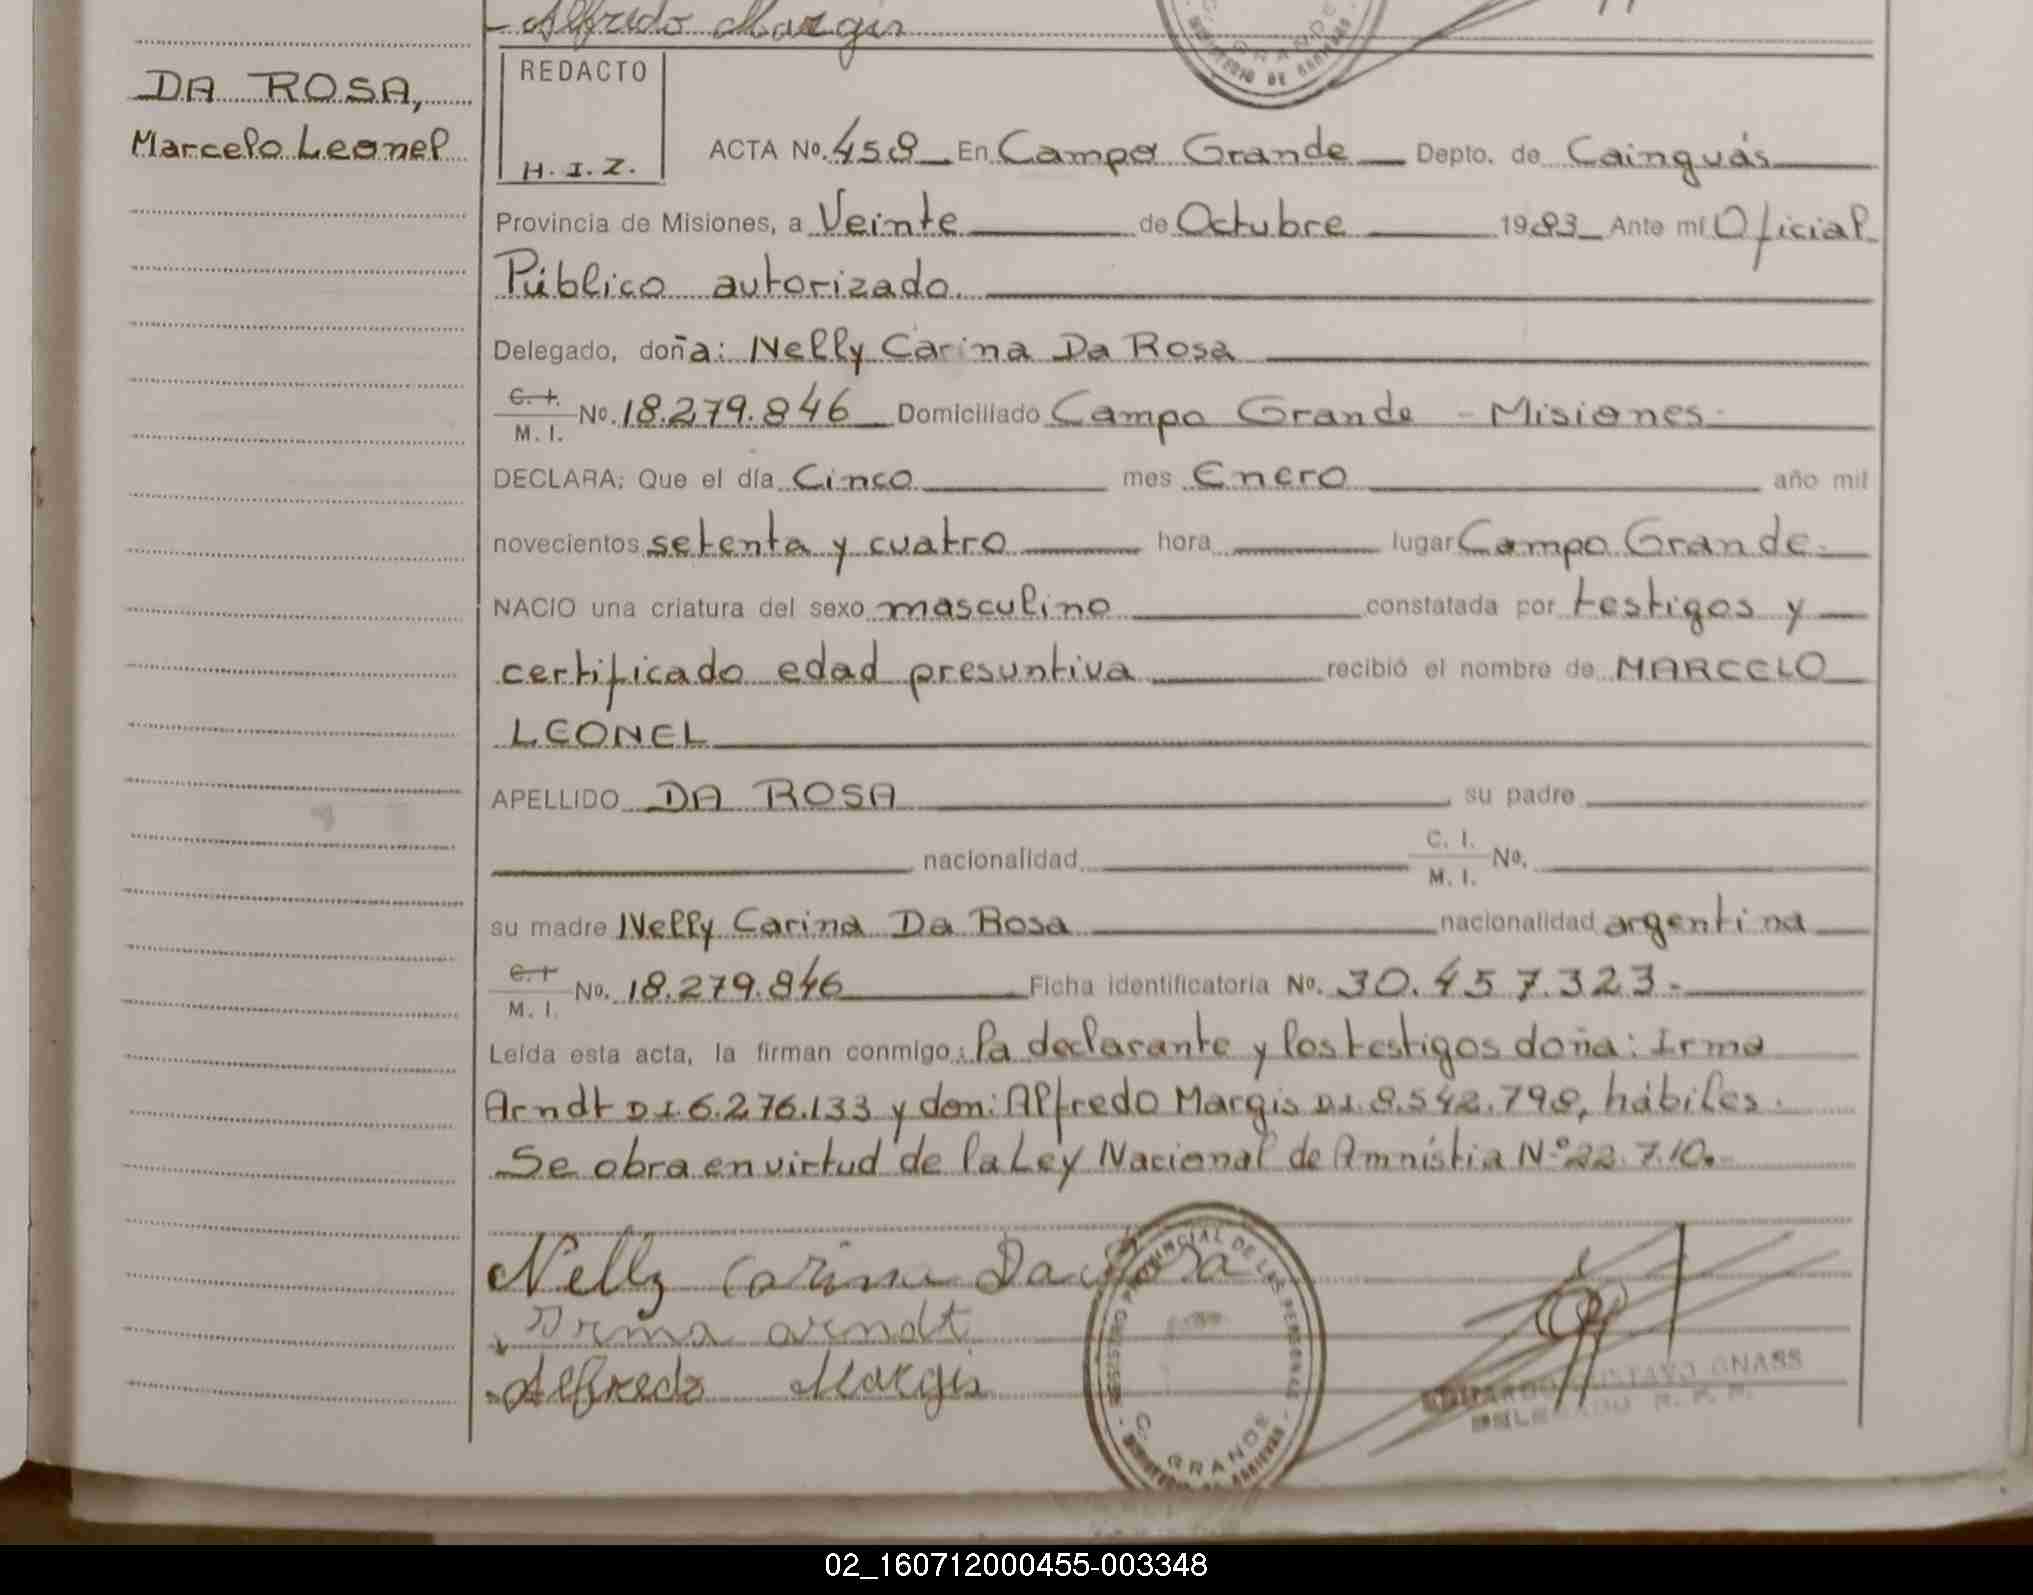 Alfredo Margis
DA ROSA,
Marcelo Leonel
REDACTO
H.I.Z.
ACTA Nº. 458 En Campo Grande Depto. de Cainguás
Provincia de Misiones, a Veinte de Octubre 1983 Ante mí Oficial
Público autorizado.
Delegado, doña: Nelly Carina Da Rosa
C. I. M. I. Nº. 18.279.846 Domiciliado Campo Grande - Misiones-
DECLARA: Que el día Cinco mes Enero año mil
novecientos setenta y cuatro hora lugar Campo Grande-
NACIO una criatura del sexo masculino constatada por testigos y
certificado edad presuntiva recibió el nombre de MARCELO
LEONEL
APELLIDO DA ROSA su padre
nacionalidad C. I. M. I. Nº.
su madre Nelly Carina Da Rosa nacionalidad argentina
C. I. M. I. Nº. 18.279.846 Ficha identificatoria Nº. 30.457.323.-
Leída esta acta, la firman conmigo: la declarante y los testigos doña: Irma
Arndt D.I. 6.276.133 y don: Alfredo Margis D.I. 8.542.798, hábiles.
Se obra en virtud de la Ley Nacional de Amnístia Nº 22.7.10.
Nelly Carina Da Rosa
Irma arndt
Alfredo Margis
REGISTRO PROVINCIAL DE LAS PERSONAS
C. GRANDE
EDUARDO GUSTAVO GNASS
DELEGADO R. P. P.
02_160712000455-003348